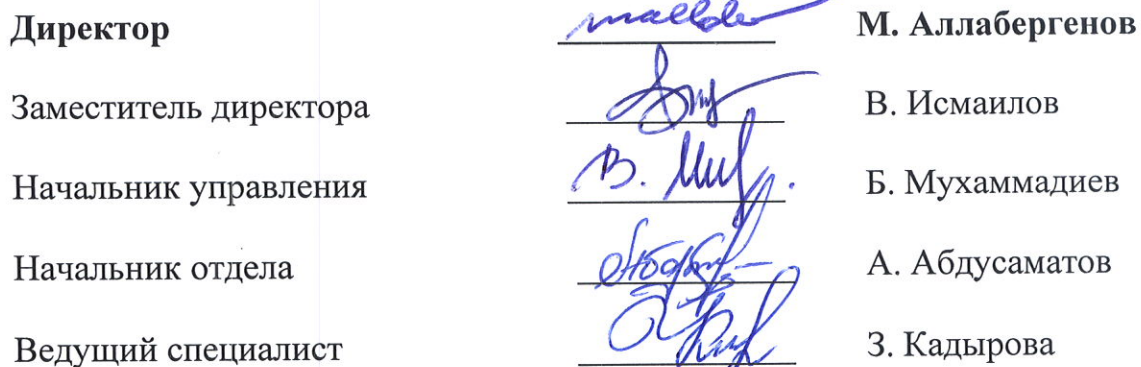 Директор М. Аллабергенов
Заместитель директора В. Исмаилов
Начальник управления Б. Мухаммадиев
Начальник отдела А. Абдусаматов
Ведущий специалист З. Кадырова